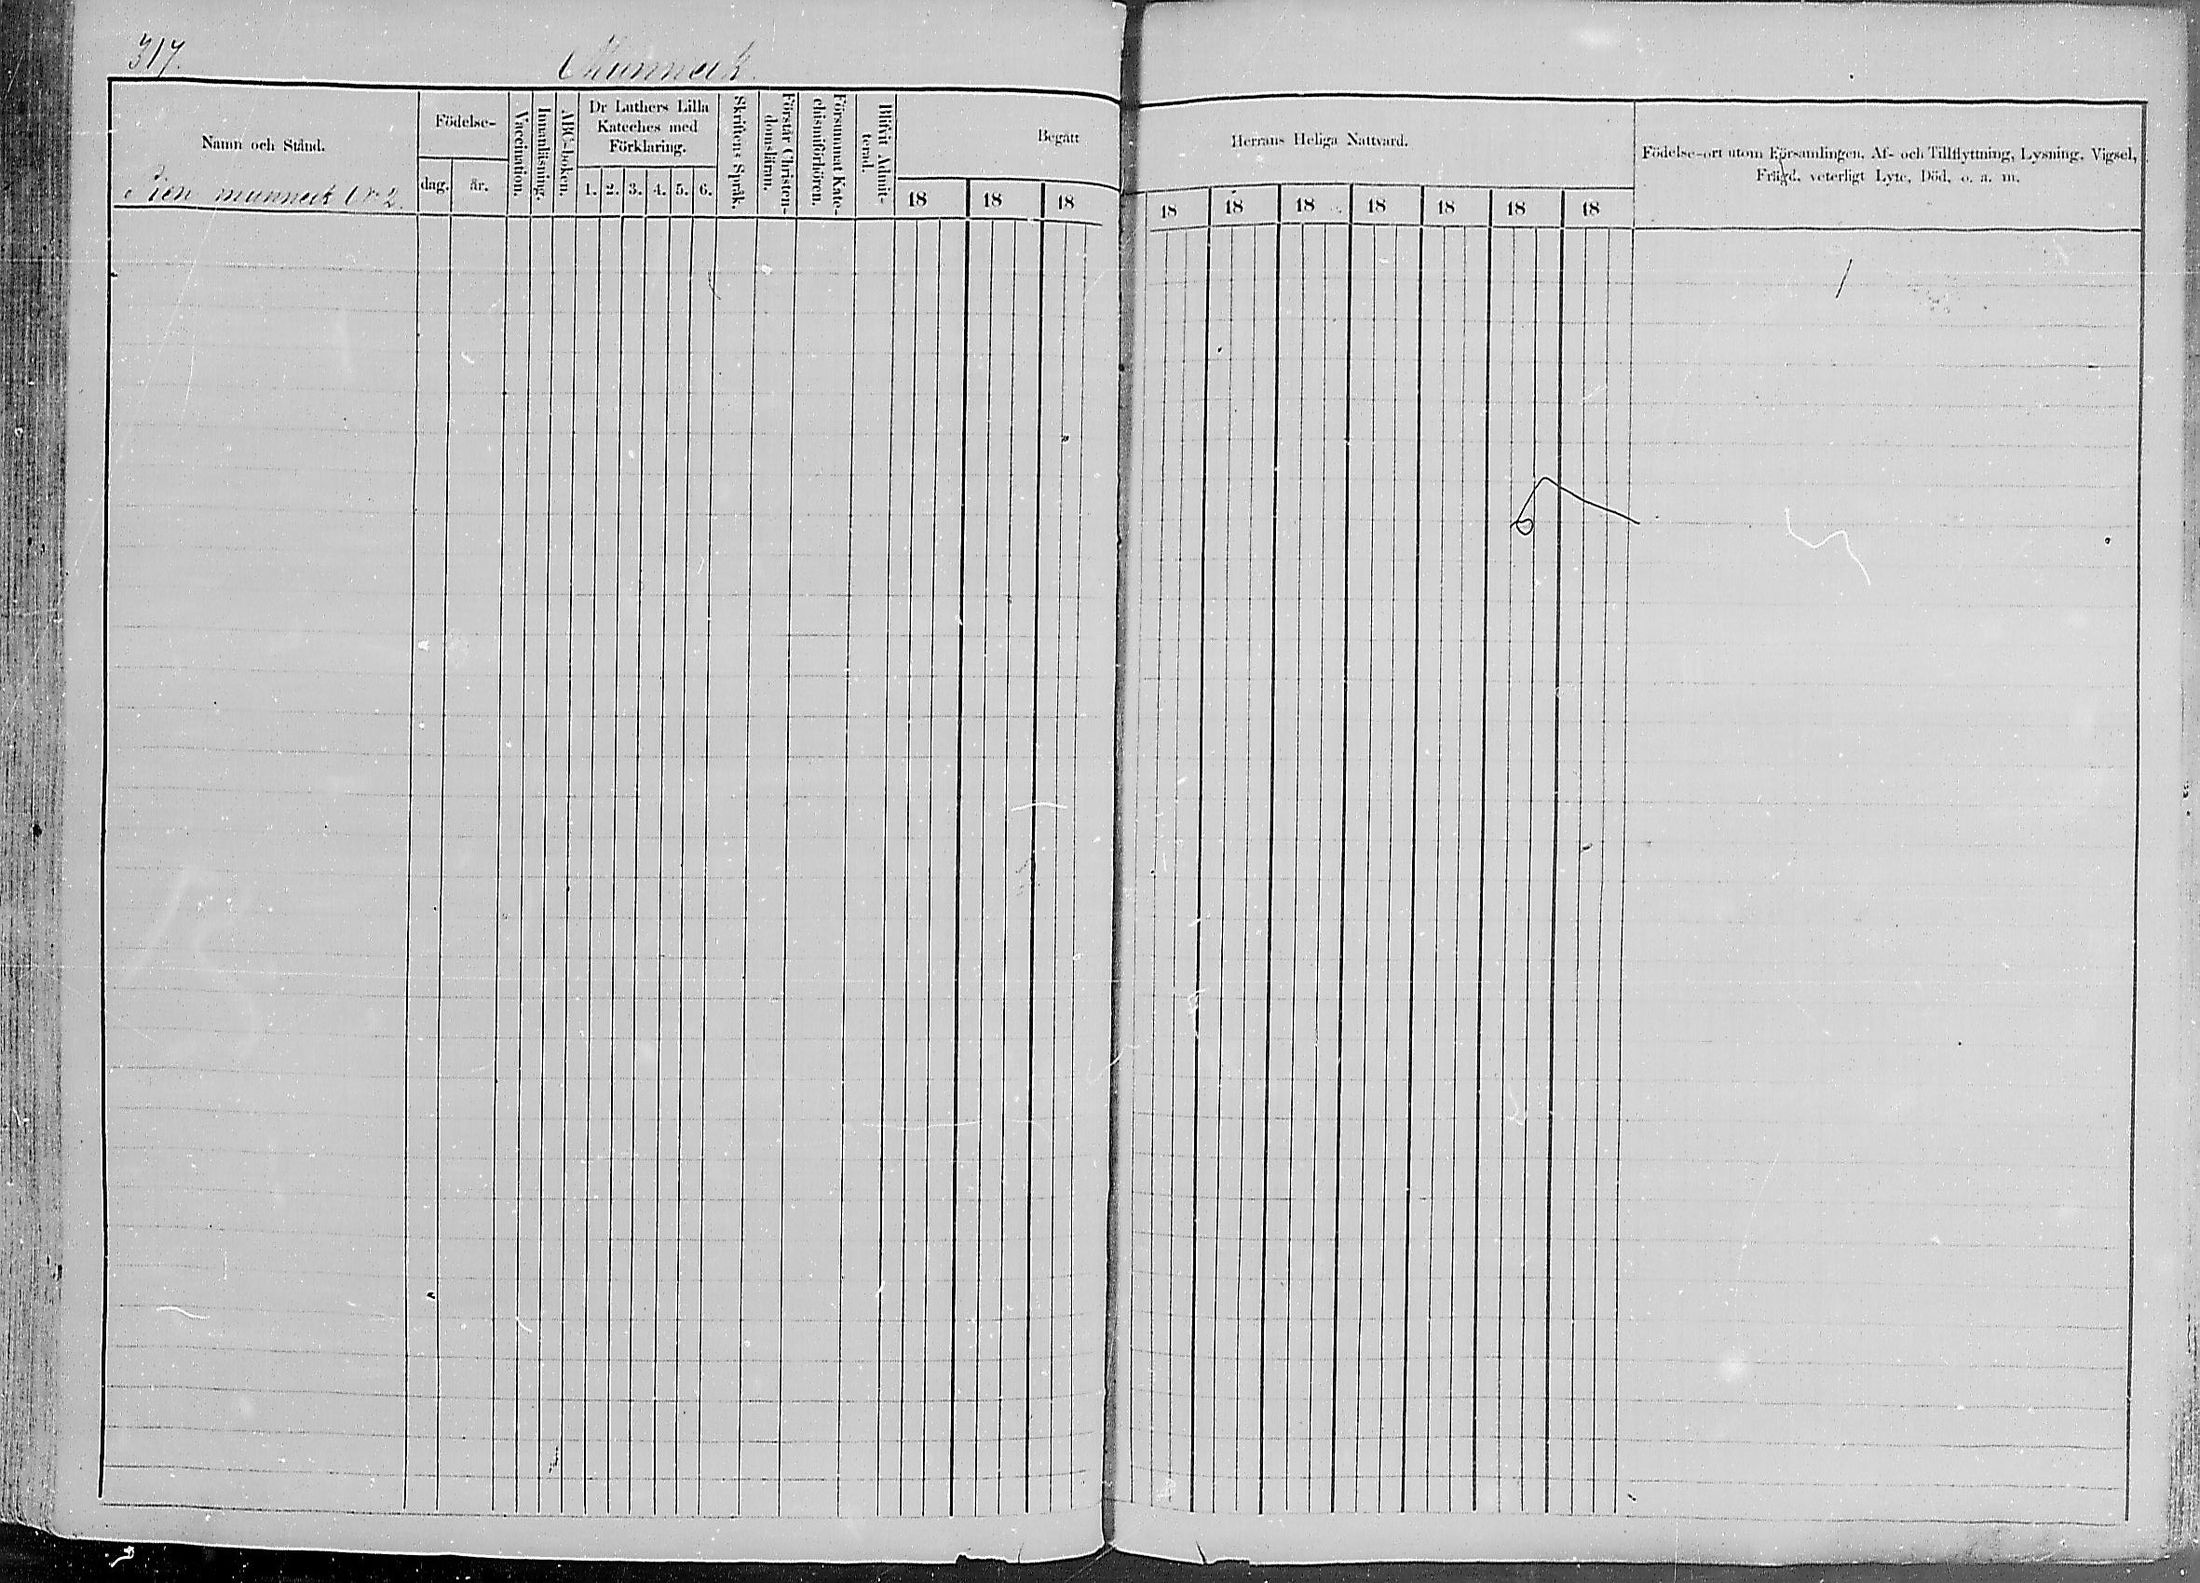 317.
Munneck.
Namn och Stånd.
Födelse-
dag.
år.
Vaccination.
Innanläsning.
ABC-boken.
Dr Luthers Lilla
Kateches med
Förklaring.
1. 2. 3. 4. 5. 6.
Skriftens Språk.
Förstår Christen-
domsläran.
Försummat Kate-
chismiförhören.
Blifvit Admit-
terad.
Begått
Herrans Heliga Nattvard.
18 18 18 18 18 18 18 18 18 18
Födelse-ort utom Församlingen, Af- och Tillflyttning, Lysning, Vigsel,
Frägd, veterligt Lyte, Död, o. a. m.
munneck N:o 2.